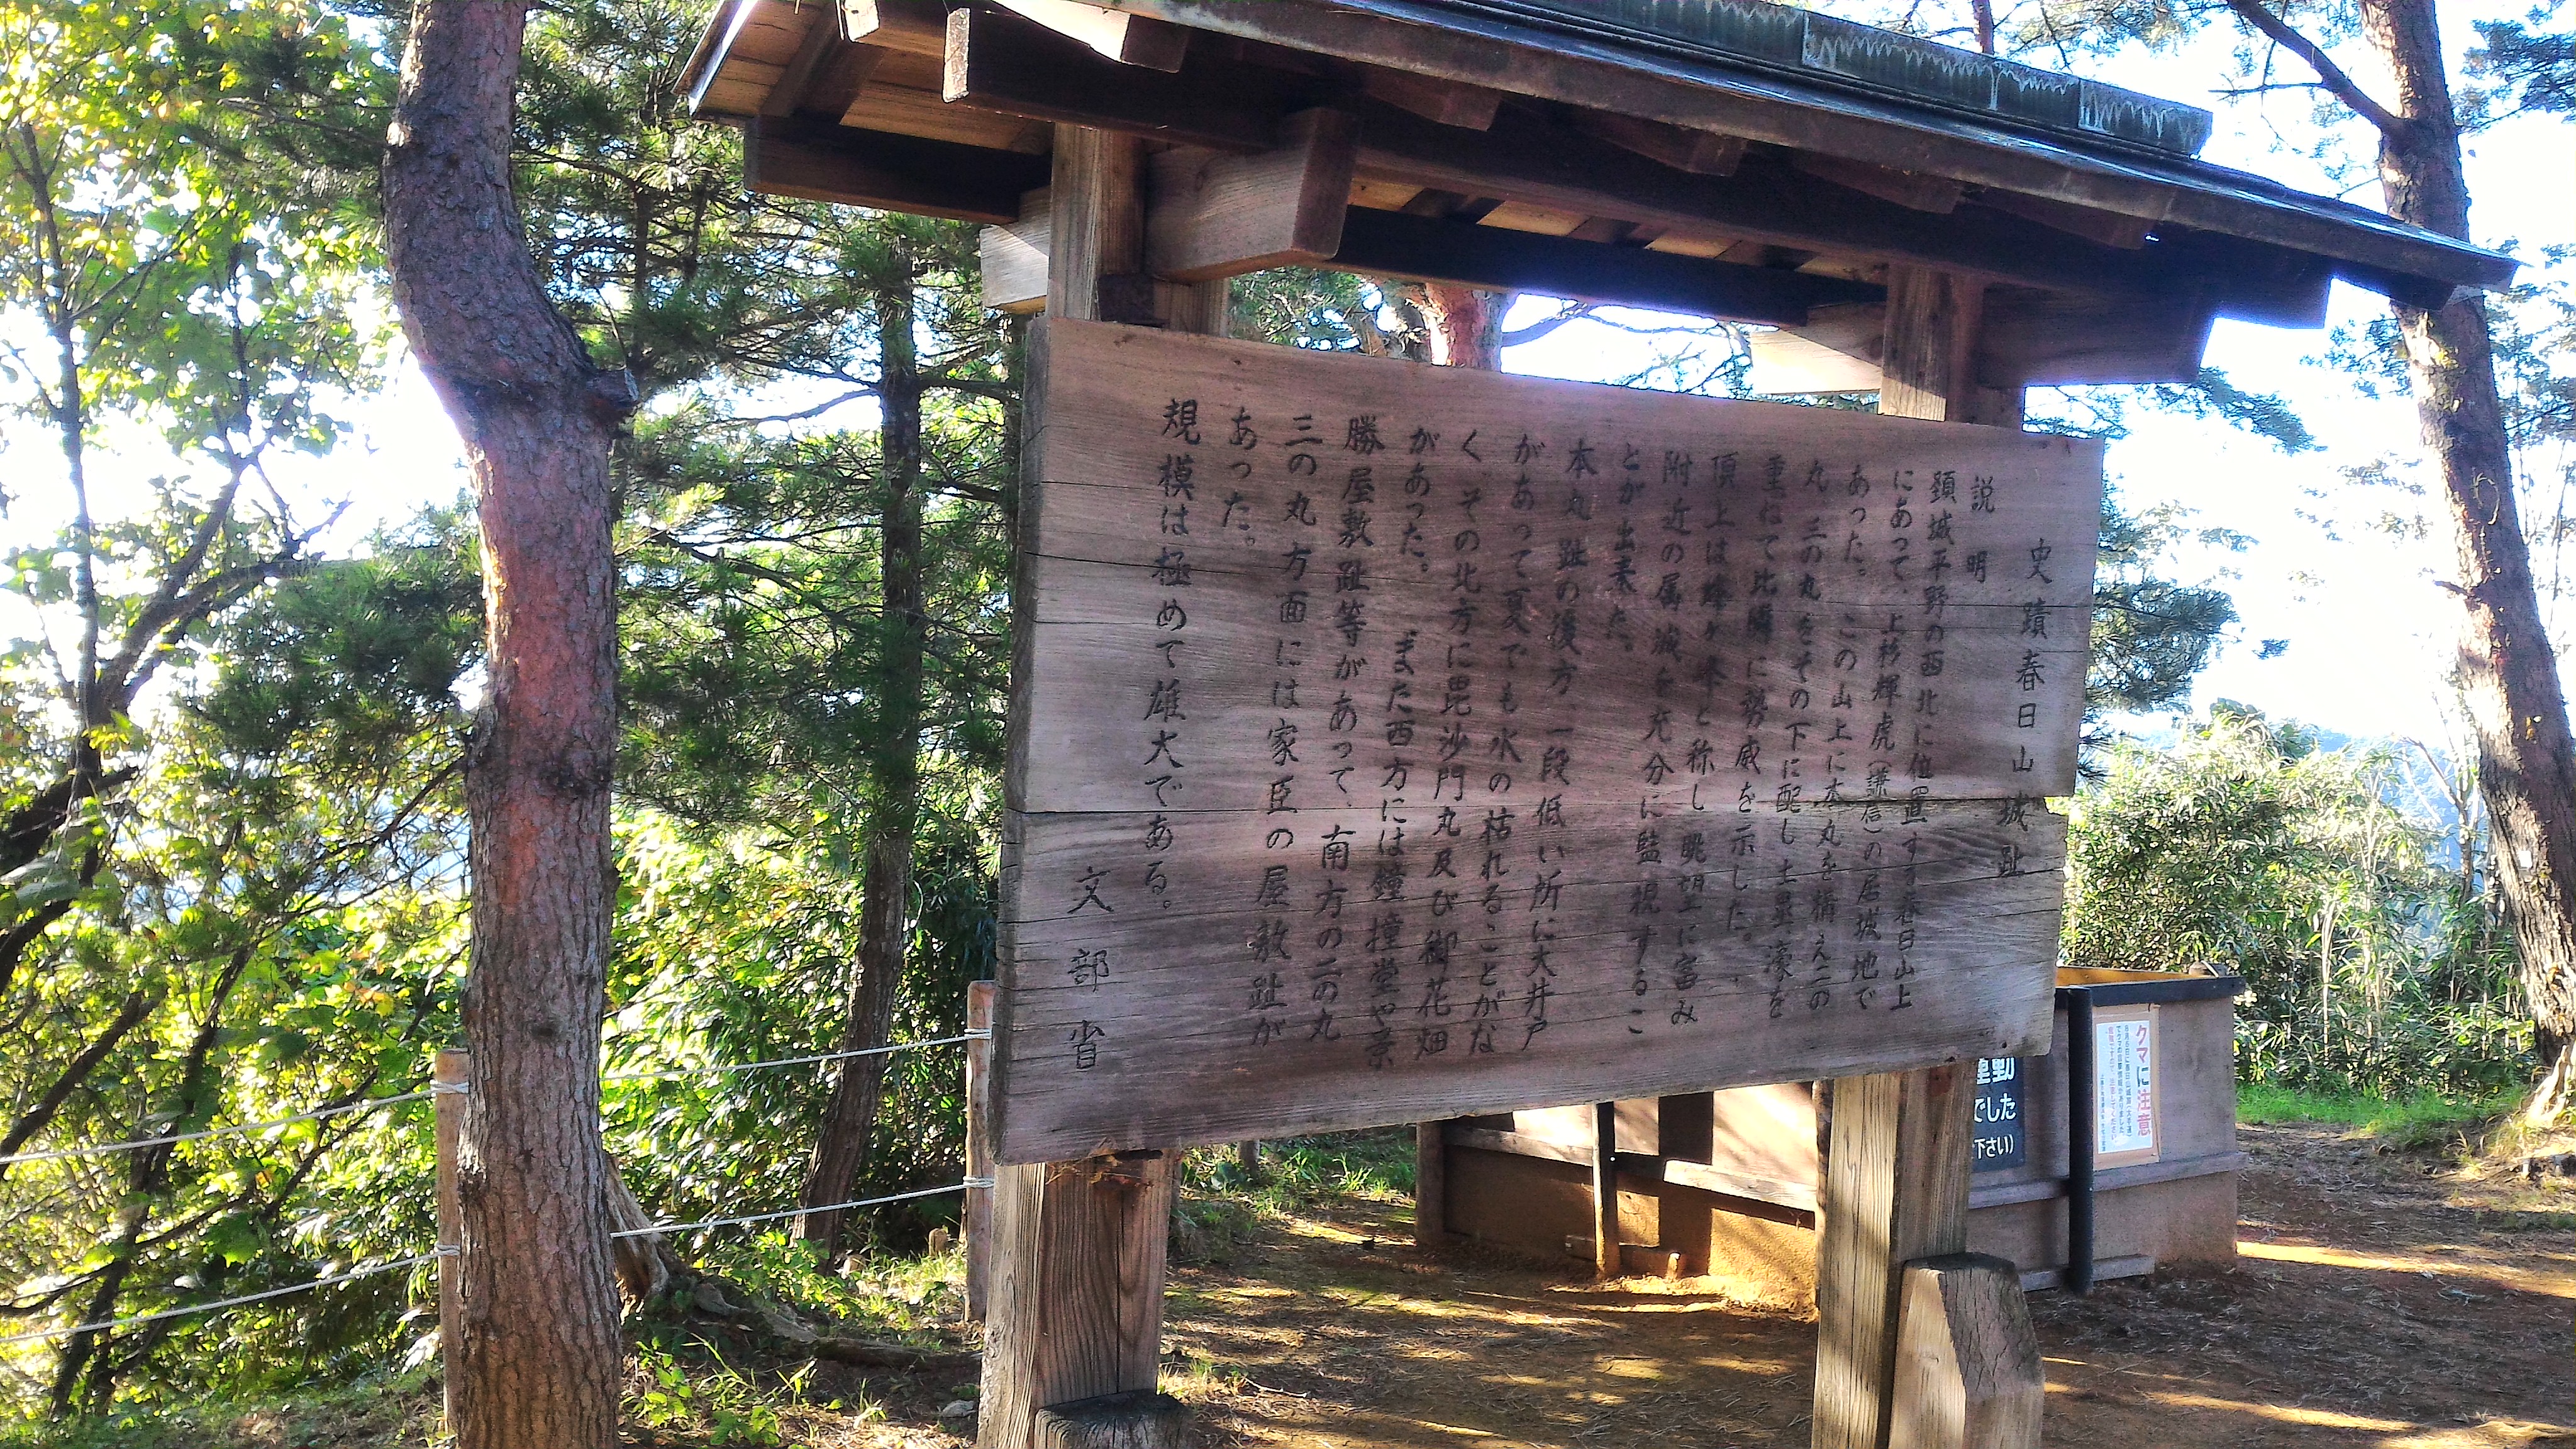 史蹟春日山城趾
説明
頸城平野の西北に位置する春日山上
にあって、上杉輝虎(謙信)の居城地で
あった。この山上に本丸を構え二の
丸 三の丸をその下に配し土塁濠を
重にて比隣に勢威を示した。
頂上は蜂ヶ峯と称し眺望に富み
附近の属城を充分に監視するこ
とが出来た。
本丸趾の後方、一段低い所に大井戸
があって夏でも水の枯れることがな
く、その北方に毘沙門丸及び御花畑
があった。 また西方には鐘撞堂や景
勝屋敷趾等があって、南方の二の丸
三の丸方面には家臣の屋敷趾が
あった。
規模は極めて雄大である。
文部省
でした
下さい)
クマに注意